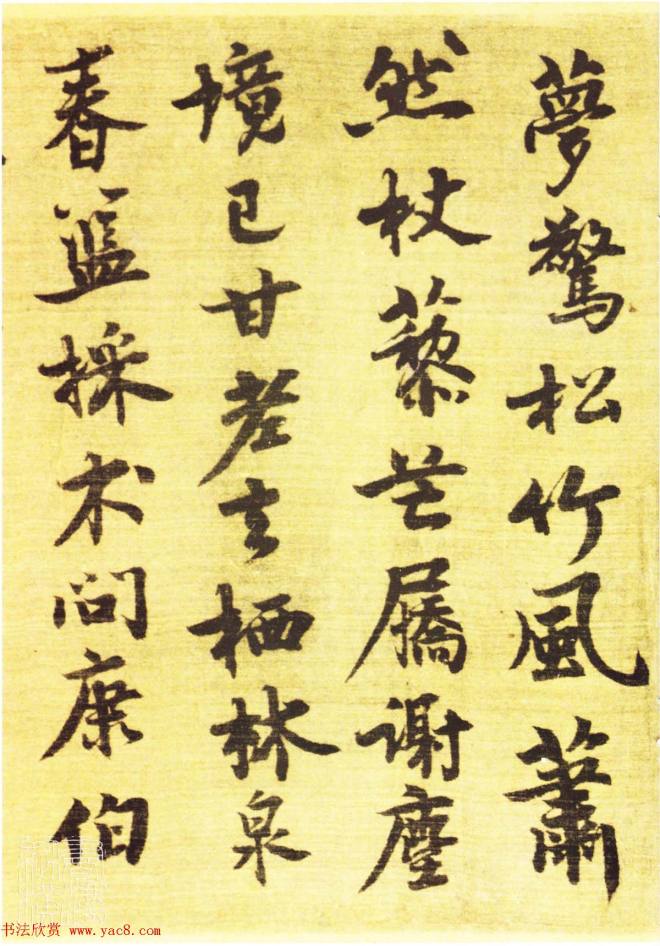 夢驚松竹風蕭
然杖藜芒屩謝塵
境已甘老去栖林泉
春籃採术問康伯
书法欣赏 www.yac8.com